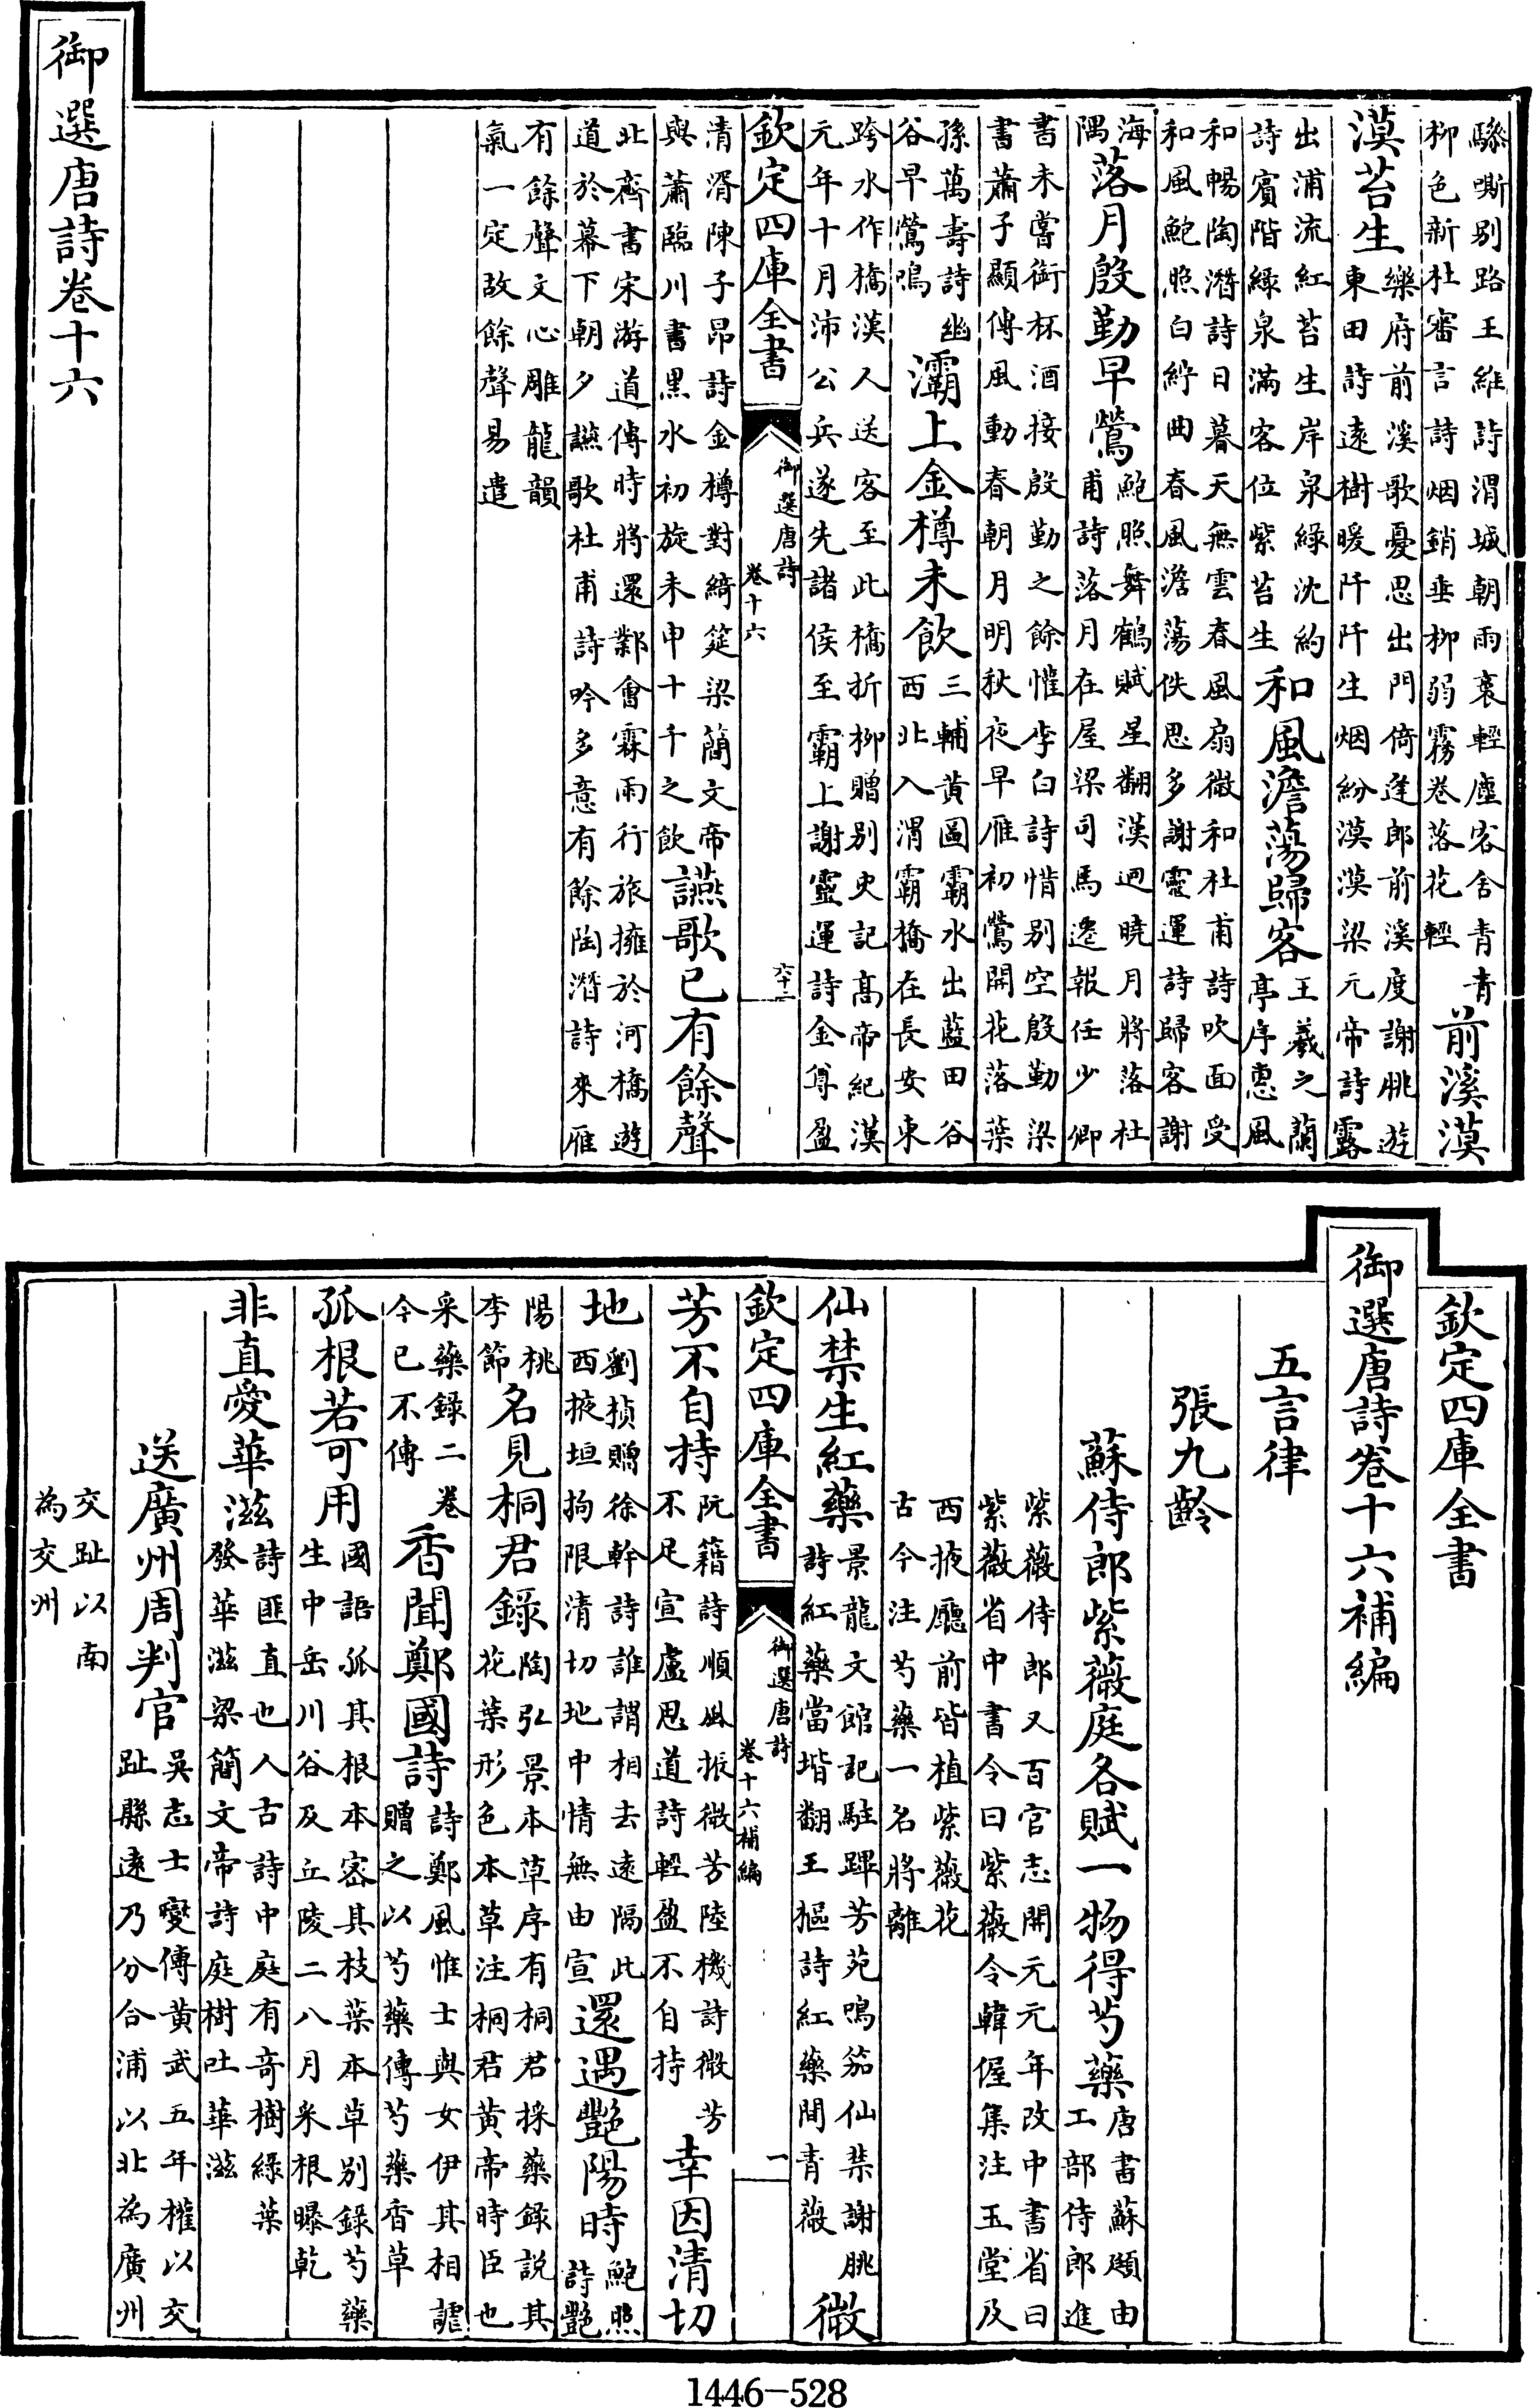 驂嘶别路王維詩渭城朝雨裛輕塵客舍青青
柳色新杜審言詩烟銷垂柳弱霧卷落花輕
前溪漠
漠苔生
樂府前溪歌憂思出門倚逢郎前溪度謝朓遊
東田詩遠樹暖阡阡生烟紛漠漠梁元帝詩露
出浦流紅苔生岸泉綠沈約
詩賓階綠泉滿客位紫苔生
和風澹蕩歸客
王羲之蘭
亭序惠風
和暢陶潛詩日暮天無雲春風扇微和杜甫詩吹面受
和風鮑照白紵曲春風澹蕩佚思多謝靈運詩歸客謝
海
隅
落月殷勤早鶯
鮑照舞鶴賦星翻漢迥曉月將落杜
甫詩落月在屋梁司馬遷報任少卿
書未嘗銜杯酒接殷勤之餘懽李白詩惜别空殷勤梁
書蕭子顯傳風動春朝月明秋夜早雁初鶯開花落葉
孫萬壽詩幽
谷早鶯鳴
灞上金樽未飲
三輔黄圖霸水出藍田谷
西北入渭霸橋在長安東
跨水作橋漢人送客至此橋折柳贈别史記高帝紀漢
元年十月沛公兵遂先諸侯至霸上謝靈運詩金尊盈
欽定四庫全書
御選唐詩
卷十六
清湑陳子昂詩金樽對綺筵梁簡文帝
與蕭臨川書黑水初旋未申十千之飲
讌歌已有餘聲
北齊書宋游道傳時將還鄴會霖雨行旅擁於河橋遊
道於幕下朝夕讌歌杜甫詩吟多意有餘陶潛詩來雁
有餘聲文心雕龍韻
氣一定故餘聲易遣
御選唐詩卷十六
欽定四庫全書
御選唐詩卷十六補編
五言律
張九齡
蘇侍郎紫薇庭各賦一物得芍藥
唐書蘇頲由
工部侍郎進
紫薇侍郎又百官志開元元年改中書省曰
紫薇省中書令曰紫薇令韓偓集注玉堂及
西掖廳前皆植紫薇花
古今注芍藥一名將離
仙禁生紅藥
景龍文館記駐蹕芳苑鳴笳仙禁謝朓
詩紅藥當堦翻王樞詩紅藥間青薇
微
欽定四庫全書
御選唐詩
卷十六補編
一
芳不自持
阮籍詩順風振微芳陸機詩微芳
不足宣盧思道詩輕盈不自持
幸因清切
地
劉楨贈徐幹詩誰謂相去遠隔此
西掖垣拘限清切地中情無由宣
還遇艷陽時
鮑照
詩艷
陽桃
李節
名見桐君錄
陶弘景本草序有桐君採藥録説其
花葉形色本草注桐君黄帝時臣也
采藥録二卷
今已不傳
香聞鄭國詩
詩鄭風惟士與女伊其相謔
贈之以芍藥傳芍藥香草
孤根若可用
國語孤其根本密其枝葉本草别録芍藥
生中岳川谷及丘陵二八月采根曝乾
非直愛華滋
詩匪直也人古詩中庭有奇樹綠葉
發華滋梁簡文帝詩庭樹吐華滋
送廣州周判官
吳志士燮傳黄武五年權以交
趾縣遠乃分合浦以北為廣州
交趾以南
為交州
1446-528